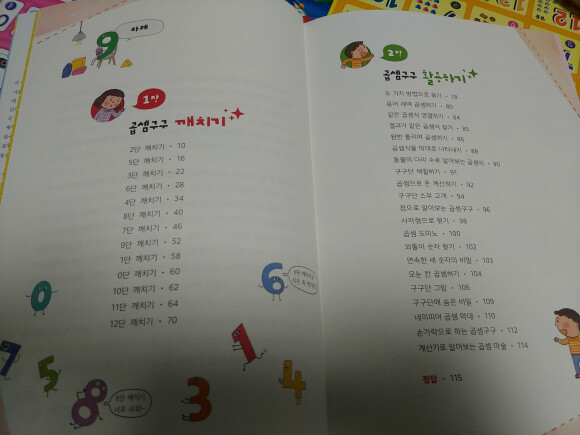 차례
1장
곱셈구구 깨치기
2단 깨치기 • 10
5단 깨치기 • 16
3단 깨치기 • 22
6단 깨치기 • 28
4단 깨치기 • 34
8단 깨치기 • 40
7단 깨치기 • 46
9단 깨치기 • 52
1단 깨치기 • 58
0단 깨치기 • 60
10단 깨치기 • 62
11단 깨치기 • 64
12단 깨치기 • 70
8단 깨치기
너무 쉬워~
2장
곱셈구구 활용하기
두 가지 방법으로 묶기 • 78
뛰어 세며 곱셈하기 • 80
같은 곱셈식 연결하기 • 84
결과가 같은 곱셈식 찾기 • 85
원판 돌리며 곱셈하기 • 86
곱셈식을 막대로 나타내기 • 88
동물의 다리 수로 알아보는 곱셈식 • 90
구구단 색칠하기 • 91
곱셈으로 돈 계산하기 • 92
구구단 스무 고개 • 94
점으로 알아보는 곱셈구구 • 96
사각형으로 묶기 • 98
곱셈 도미노 • 100
외톨이 숫자 찾기 • 102
연속한 세 숫자의 비밀 • 103
모눈 칸 곱셈하기 • 104
구구단 그림 • 106
구구단에 숨은 비밀 • 109
네이피어 곱셈 막대 • 110
손가락으로 하는 곱셈구구 • 112
계산기로 알아보는 곱셈 마술 • 114
정답 • 115
9
0
6
7
5
8
3
1
4